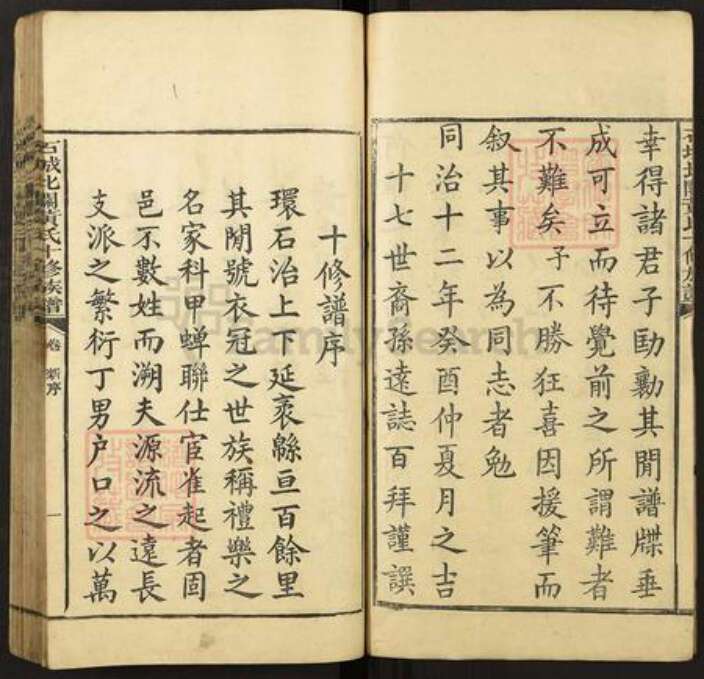 幸得諸君子勷其間譜牒垂
成可立而待覺前之所謂難者
不難矣予不勝狂喜因援筆而
敘其事以為同志者勉
同治十二年癸酉仲夏月之吉
十七世裔孫遠誌百拜謹譔
十修譜序
環石治上下延袤緜亘百餘里
其閒號衣冠之世族稱禮樂之
名家科甲蟬聯仕宦雀起者固
邑不數姓而溯夫源流之遠長
支派之繁衍丁男户口之以萬
石城北關黃氏十修族譜
卷 新序
一
FamilySearch